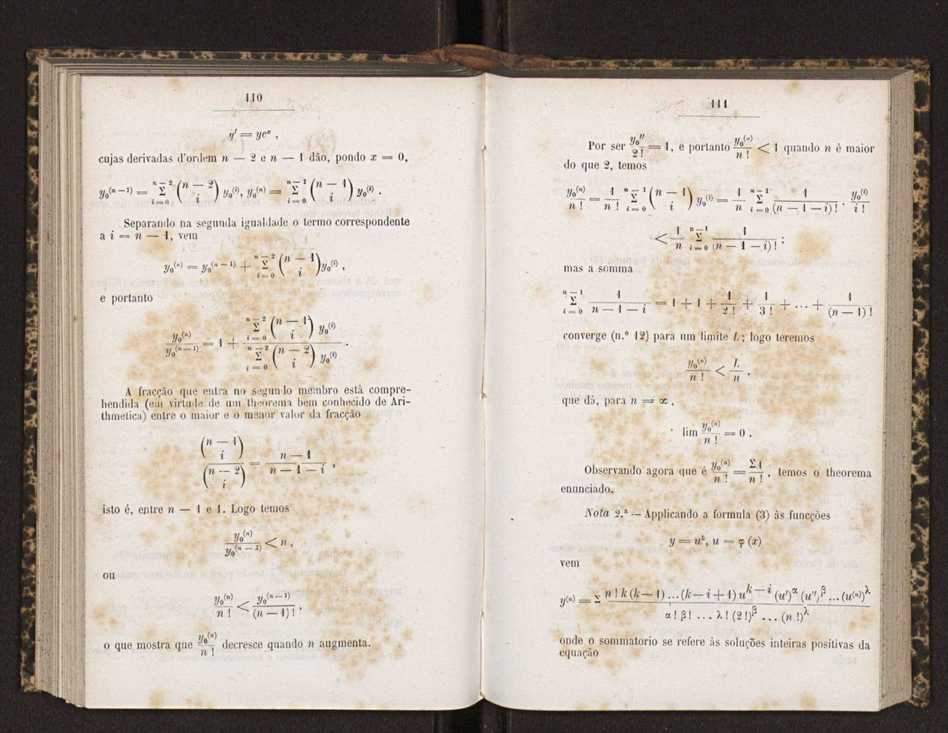 110
y' = ye^x ,
cujas derivadas d'ordem n — 2 e n — 1 dão, pondo x = 0,
y₀^(n−1) = Σ_{i=0}^{n−2} (n − 2 / i) y₀^(i), y₀^(n) = Σ_{i=0}^{n−1} (n − 1 / i) y₀^(i) .
Separando na segunda igualdade o termo correspondente
a i = n — 1, vem
y₀^(n) = y₀^(n−1) + Σ_{i=0}^{n−2} (n − 1 / i) y₀^(i) ,
e portanto
y₀^(n) / y₀^(n−1) = 1 + Σ_{i=0}^{n−2} (n − 1 / i) y₀^(i) / Σ_{i=0}^{n−2} (n − 2 / i) y₀^(i) .
A fracção que entra no segundo membro está compre-
hendida (em virtude de um theorema bem conhecido de Ari-
thmetica) entre o maior e o menor valor da fracção
(n − 1 / i) / (n − 2 / i) = n − 1 / n − 1 − i ,
isto é, entre n — 1 e 1. Logo temos
y₀^(n) / y₀^(n−1) < n ,
ou
y₀^(n) / n ! < y₀^(n−1) / (n − 1) ! ,
o que mostra que y₀^(n) / n ! decresce quando n augmenta.
111
Por ser y₀'' / 2 ! = 1, e portanto y₀^(n) / n ! < 1 quando n é maior
do que 2, temos
y₀^(n) / n ! = 1 / n ! Σ_{i=0}^{n−1} (n − 1 / i) y₀^(i) = 1 / n Σ_{i=0}^{n−1} 1 / (n − 1 − i) ! . y₀^(i) / i !
< 1 / n Σ_{i=0}^{n−1} 1 / (n − 1 − i) ! ;
mas a somma
Σ_{i=0}^{n−1} 1 / n − 1 − i = 1 + 1 + 1 / 2 ! + 1 / 3 ! + ... + 1 / (n − 1) !
converge (n.º 12) para um limite L; logo teremos
y₀^(n) / n ! < L / n ,
que dá, para n = ∞ ,
lim y₀^(n) / n ! = 0 .
Observando agora que é y₀^(n) / n ! = Σ1 / n ! , temos o theorema
enunciado.
Nota 2.ª — Applicando a formula (3) ás funcções
y = u^k, u = φ (x)
vem
y^(n) = Σ n ! k (k − 1) ... (k − i + 1) u^(k − i) (u')^α (u'')^β ... (u^(n))^λ / α ! β ! ... λ ! (2 !)^β ... (n !)^λ
onde o sommatorio se refere ás soluções inteiras positivas da
equação